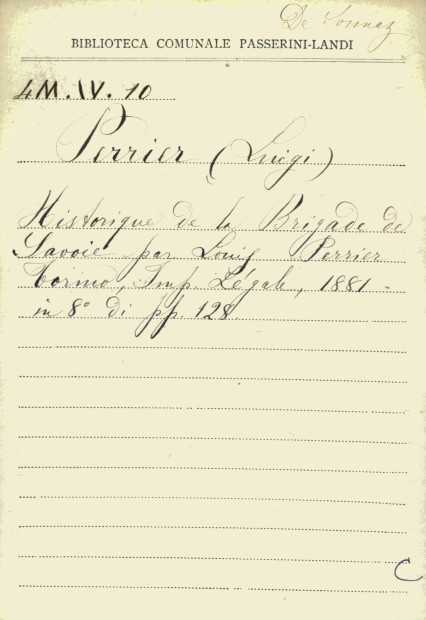 De Sonnaz
BIBLIOTECA COMUNALE PASSERINI-LANDI
4M.IV.10
Perrier (Luigi)
Historique de la Brigade de
Savoie par Louis Perrier
Torino, Imp. Légale, 1881 -
in 8° di pp. 128.
C